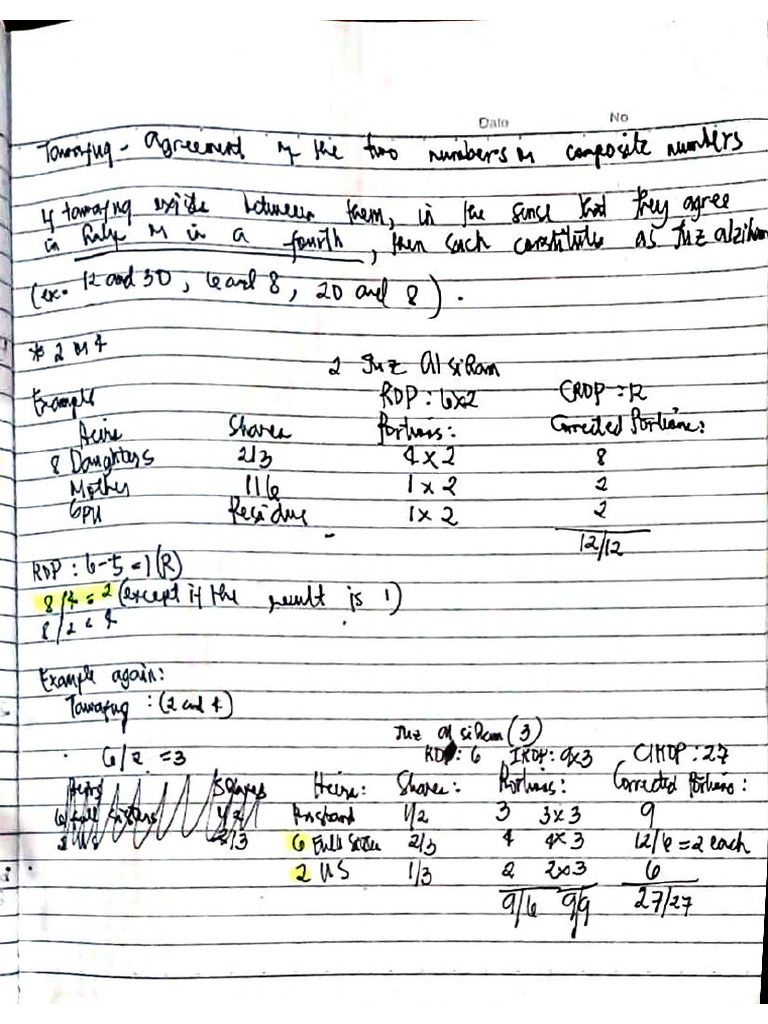 Date No
Tawafuq - Agreement of the two numbers or composite numbers
If tawafuq exists between them, in the sense that they agree
in half or in a fourth, then such constitute as Juz alsiham
(ex. 12 and 30, 6 and 8, 20 and 8).
* 2 or 4
2 Juz Al siham
Example RDP : 6x2 CRDP : 12
Heirs Shares Portions: Corrected Portions:
8 Daughters 2/3 4 x 2 8
Mother 1/6 1 x 2 2
Residue 1 x 2 2
12/12
RDP : 6-5 = 1 (R)
8/4 = 2 (except if the result is 1)
8/2 = 4
Example again:
Tawafuq : (2 and 4)
Juz Al siham (3)
6/2 = 3 RDP: 6 IRDP: 9x3 CIRDP: 27
Heirs Shares Heirs: Shares: Portions: Corrected Portions:
6 full sisters Husband 1/2 3 3x3 9
2/3 6 Full Sister 2/3 4 4x3 12/6 = 2 each
2 US 1/3 2 2x3 6
9/6 9/9 27/27